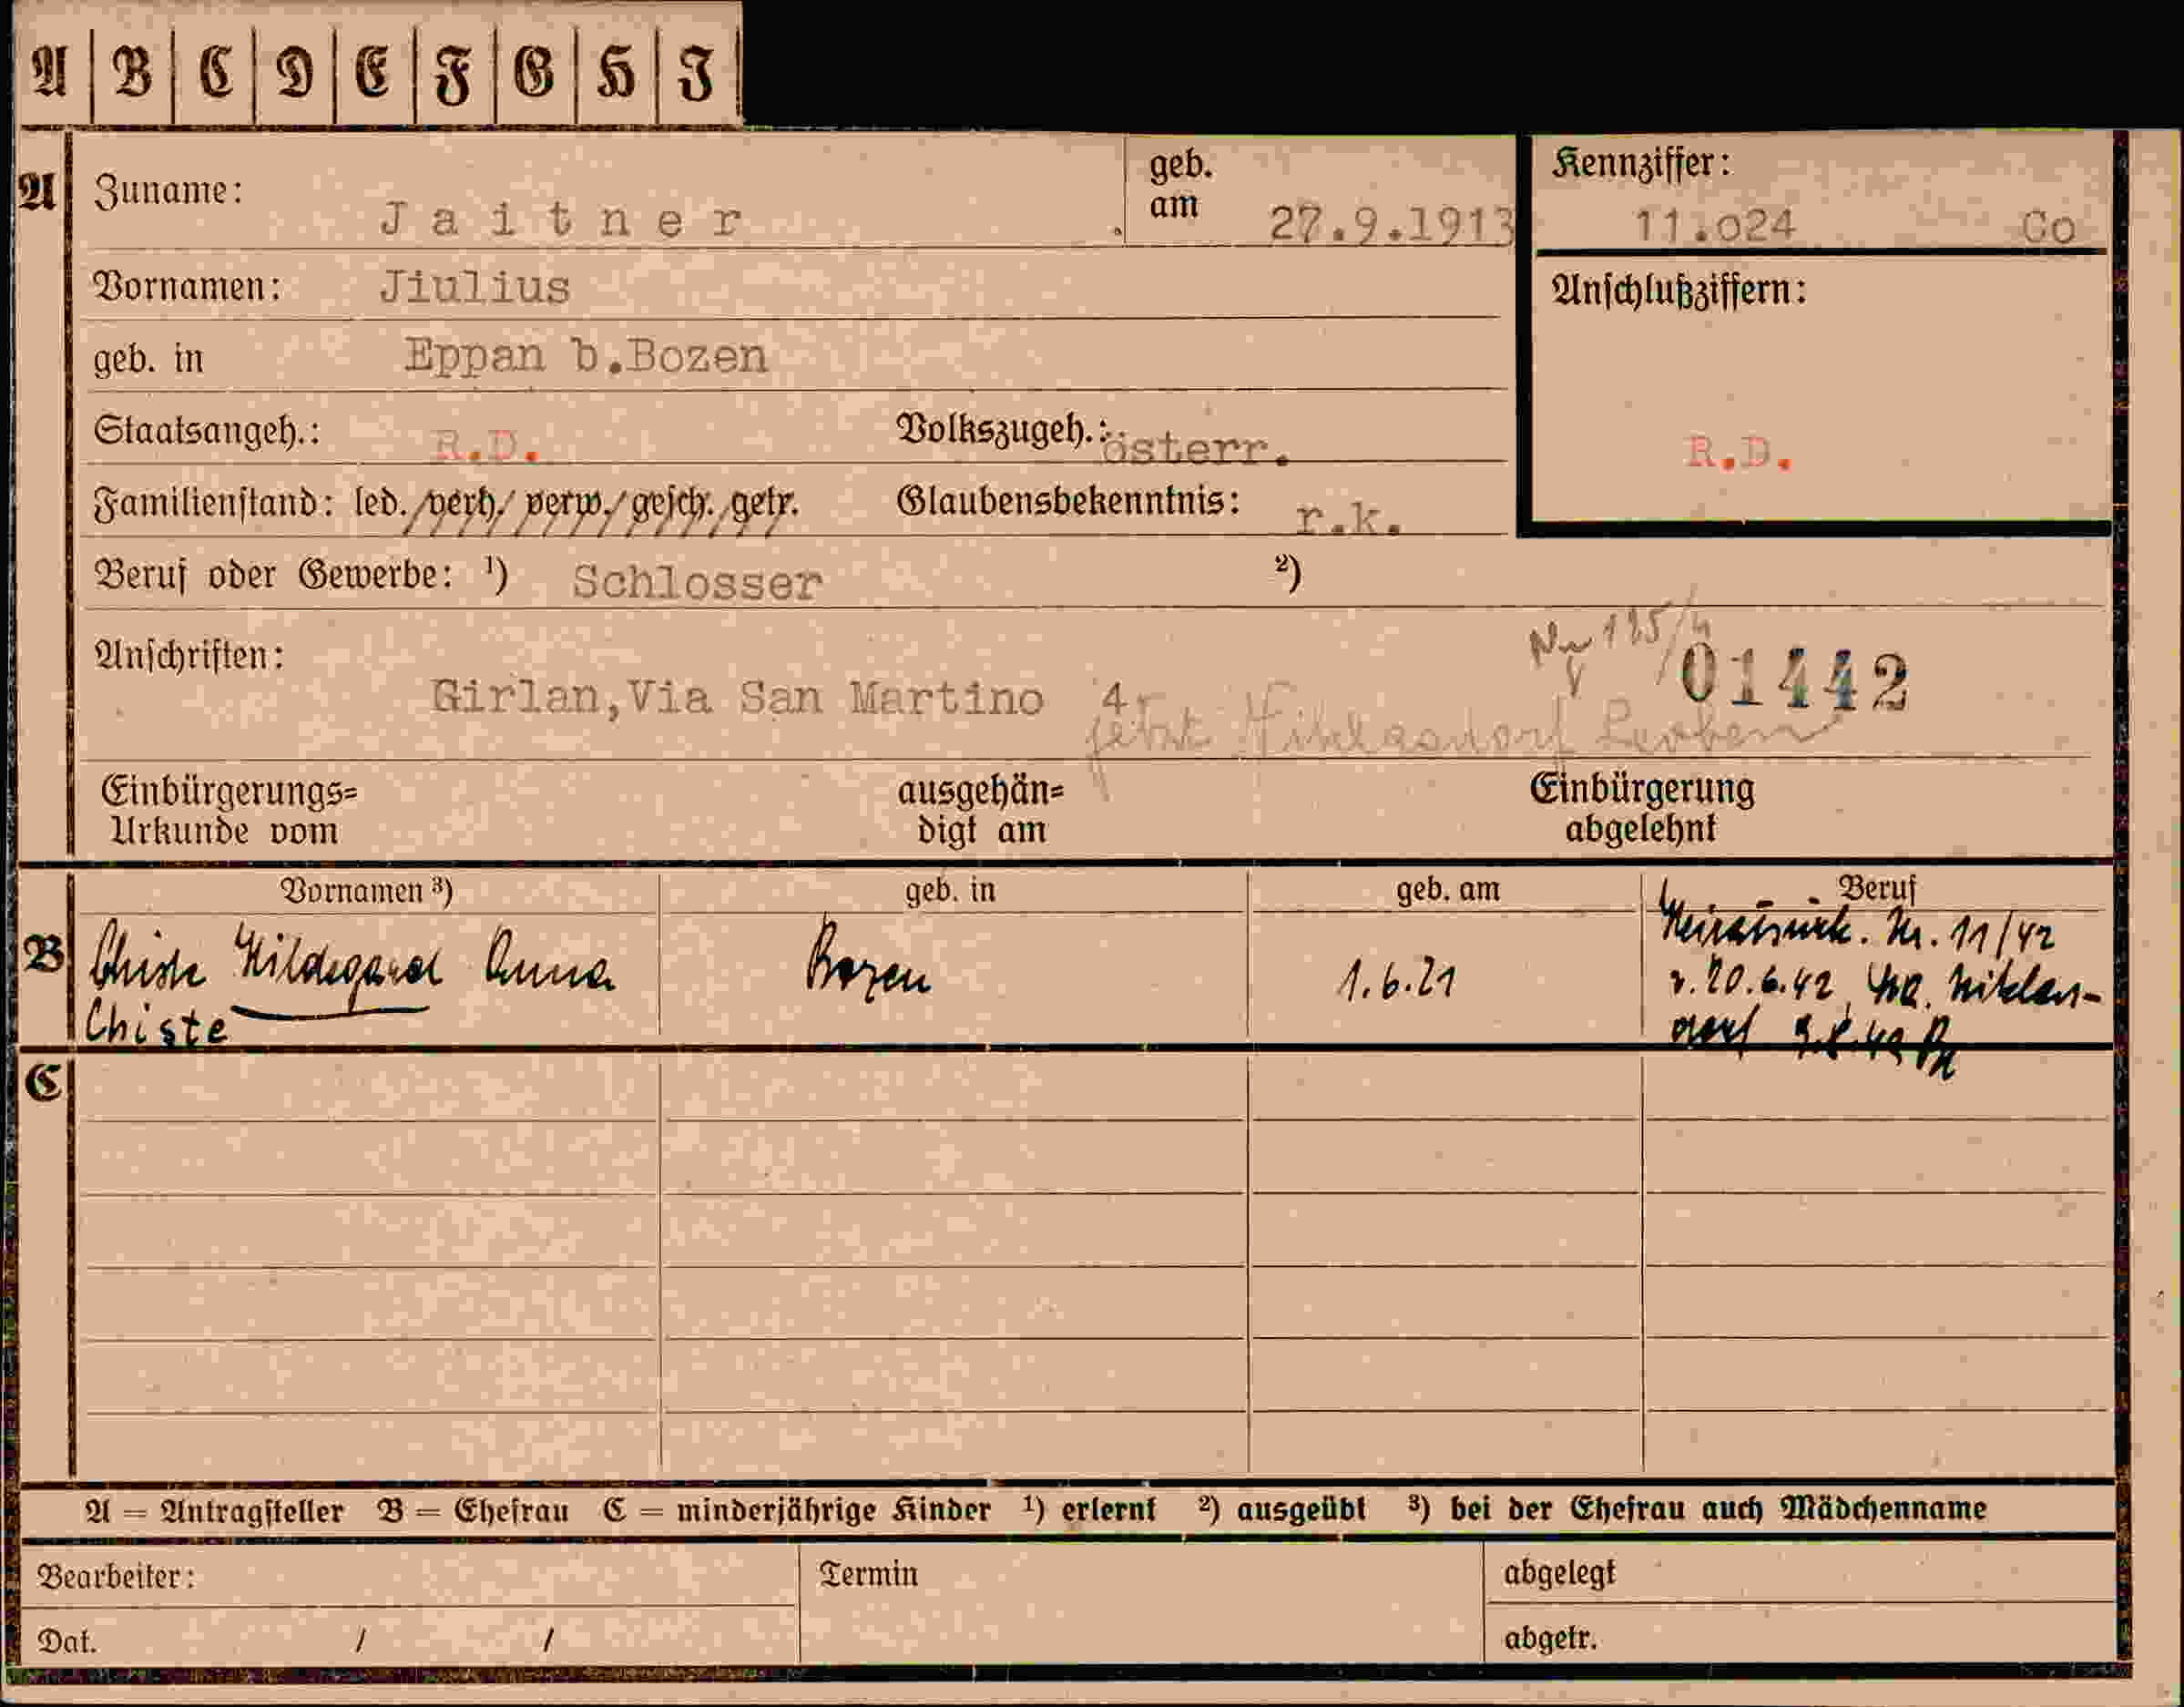 A B C D E F G H I
A Zuname: Jaitner . geb. am 27.9.1913 Kennziffer: 11.o24 Co
Vornamen: Jiulius Anschlußziffern:
geb. in Eppan b.Bozen
Staatsangeh.: R.D. Volkszugeh.: österr. R.D.
Familienstand: led./verh./verw./gesch./getr. Glaubensbekenntnis: r.k.
Beruf oder Gewerbe: ¹) Schlosser ²)
Anschriften: 01442
Girlan,Via San Martino 4
jetzt Niklasdorf Leoben
Einbürgerungs= ausgehän= Einbürgerung
Urkunde vom digt am abgelehnt
Vornamen ³) geb. in geb. am Beruf
B Chiste Hildegard Anna Bozen 1.6.21 Heiratsurk. Nr. 11/42
Chiste v. 20.6.42, Niklas-
dorf
C
A = Antragsteller B = Ehefrau C = minderjährige Kinder ¹) erlernt ²) ausgeübt ³) bei der Ehefrau auch Mädchenname
Bearbeiter: Termin abgelegt
Dat. / / abgetr.